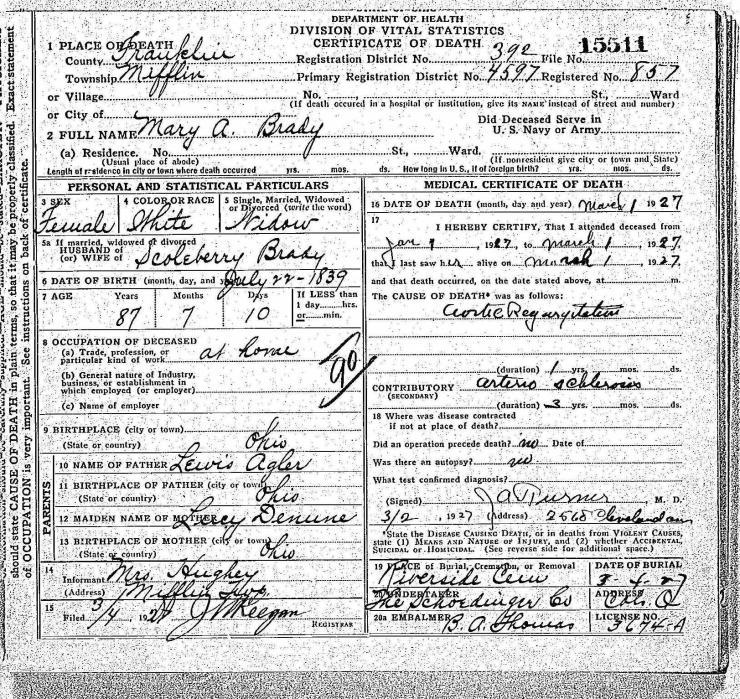 DEPARTMENT OF HEALTH
DIVISION OF VITAL STATISTICS
CERTIFICATE OF DEATH
1 PLACE OF DEATH
County Franklin Registration District No. 392 File No. 15511
Township Mifflin Primary Registration District No. 4597 Registered No. 857
or Village No. , St., Ward
(If death occured in a hospital or institution, give its NAME instead of street and number)
or City of
2 FULL NAME Mary A. Brady Did Deceased Serve in U. S. Navy or Army
(a) Residence. No. St., Ward.
(Usual place of abode) (If nonresident give city or town and State)
Length of residence in city or town where death occurred yrs. mos. ds. How long in U. S., if of foreign birth? yrs. mos. ds.
PERSONAL AND STATISTICAL PARTICULARS
3 SEX 4 COLOR OR RACE 5 Single, Married, Widowed or Divorced (write the word)
Female White Widow
5a If married, widowed or divorced
HUSBAND of
(or) WIFE of Scoleberry Brady
6 DATE OF BIRTH (month, day, and year) July 22-1839
7 AGE Years Months Days If LESS than
1 day......hrs.
87 7 10 or......min.
8 OCCUPATION OF DECEASED
(a) Trade, profession, or
particular kind of work at home
90
(b) General nature of Industry,
business, or establishment in
which employed (or employer)
(c) Name of employer
9 BIRTHPLACE (city or town)
(State or country) Ohio
PARENTS
10 NAME OF FATHER Lewis Agler
11 BIRTHPLACE OF FATHER (city or town)
(State or country) Ohio
12 MAIDEN NAME OF MOTHER Lucy Denune
13 BIRTHPLACE OF MOTHER (city or town)
(State or country) Ohio
14
Informant Mrs. Hughey
(Address) Mifflin Twp.
15
Filed 3/4, 192 J Keegan
REGISTRAR
MEDICAL CERTIFICATE OF DEATH
16 DATE OF DEATH (month, day, and year) March 1 1927
17
I HEREBY CERTIFY, That I attended deceased from
Jan 1, 1927, to March 1, 1927,
that I last saw her alive on March 1, 1927,
and that death occurred, on the date stated above, at m.
The CAUSE OF DEATH* was as follows:
Aortic Regurgitation
(duration) 1 yrs. mos. ds.
CONTRIBUTORY arterio sclerosis
(SECONDARY)
(duration) 3 yrs. mos. ds.
18 Where was disease contracted
if not at place of death?
Did an operation precede death? no Date of
Was there an autopsy? no
What test confirmed diagnosis?
(Signed) J A Turner, M. D.
3/2, 1927 (Address) 2568 Cleveland ave
*State the DISEASE CAUSING DEATH, or in deaths from VIOLENT CAUSES,
state (1) MEANS AND NATURE OF INJURY, and (2) whether ACCIDENTAL,
SUICIDAL or HOMICIDAL. (See reverse side for additional space.)
19 PLACE OF Burial, Cremation, or Removal DATE OF BURIAL
Riverside Cem 3-4-27
20 UNDERTAKER ADDRESS
The Schoedinger Co Cols. O
20a EMBALMER B. A. Thomas LICENSE NO. 3674-A
should state CAUSE OF DEATH in plain terms, so that it may be properly classified. Exact statement
of OCCUPATION is very important. See instructions on back of certificate.